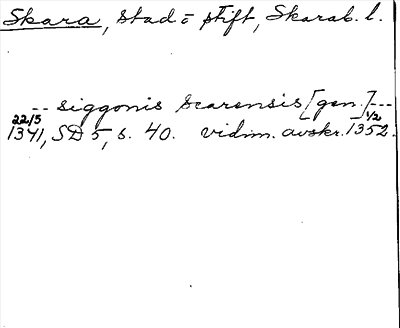 Skara, stad o stift, Skarab. l.
-- siggonis scarensis [gen.] ---
22/5 1/2
1341, SD 5, s. 40. vidim. avskr. 1352.